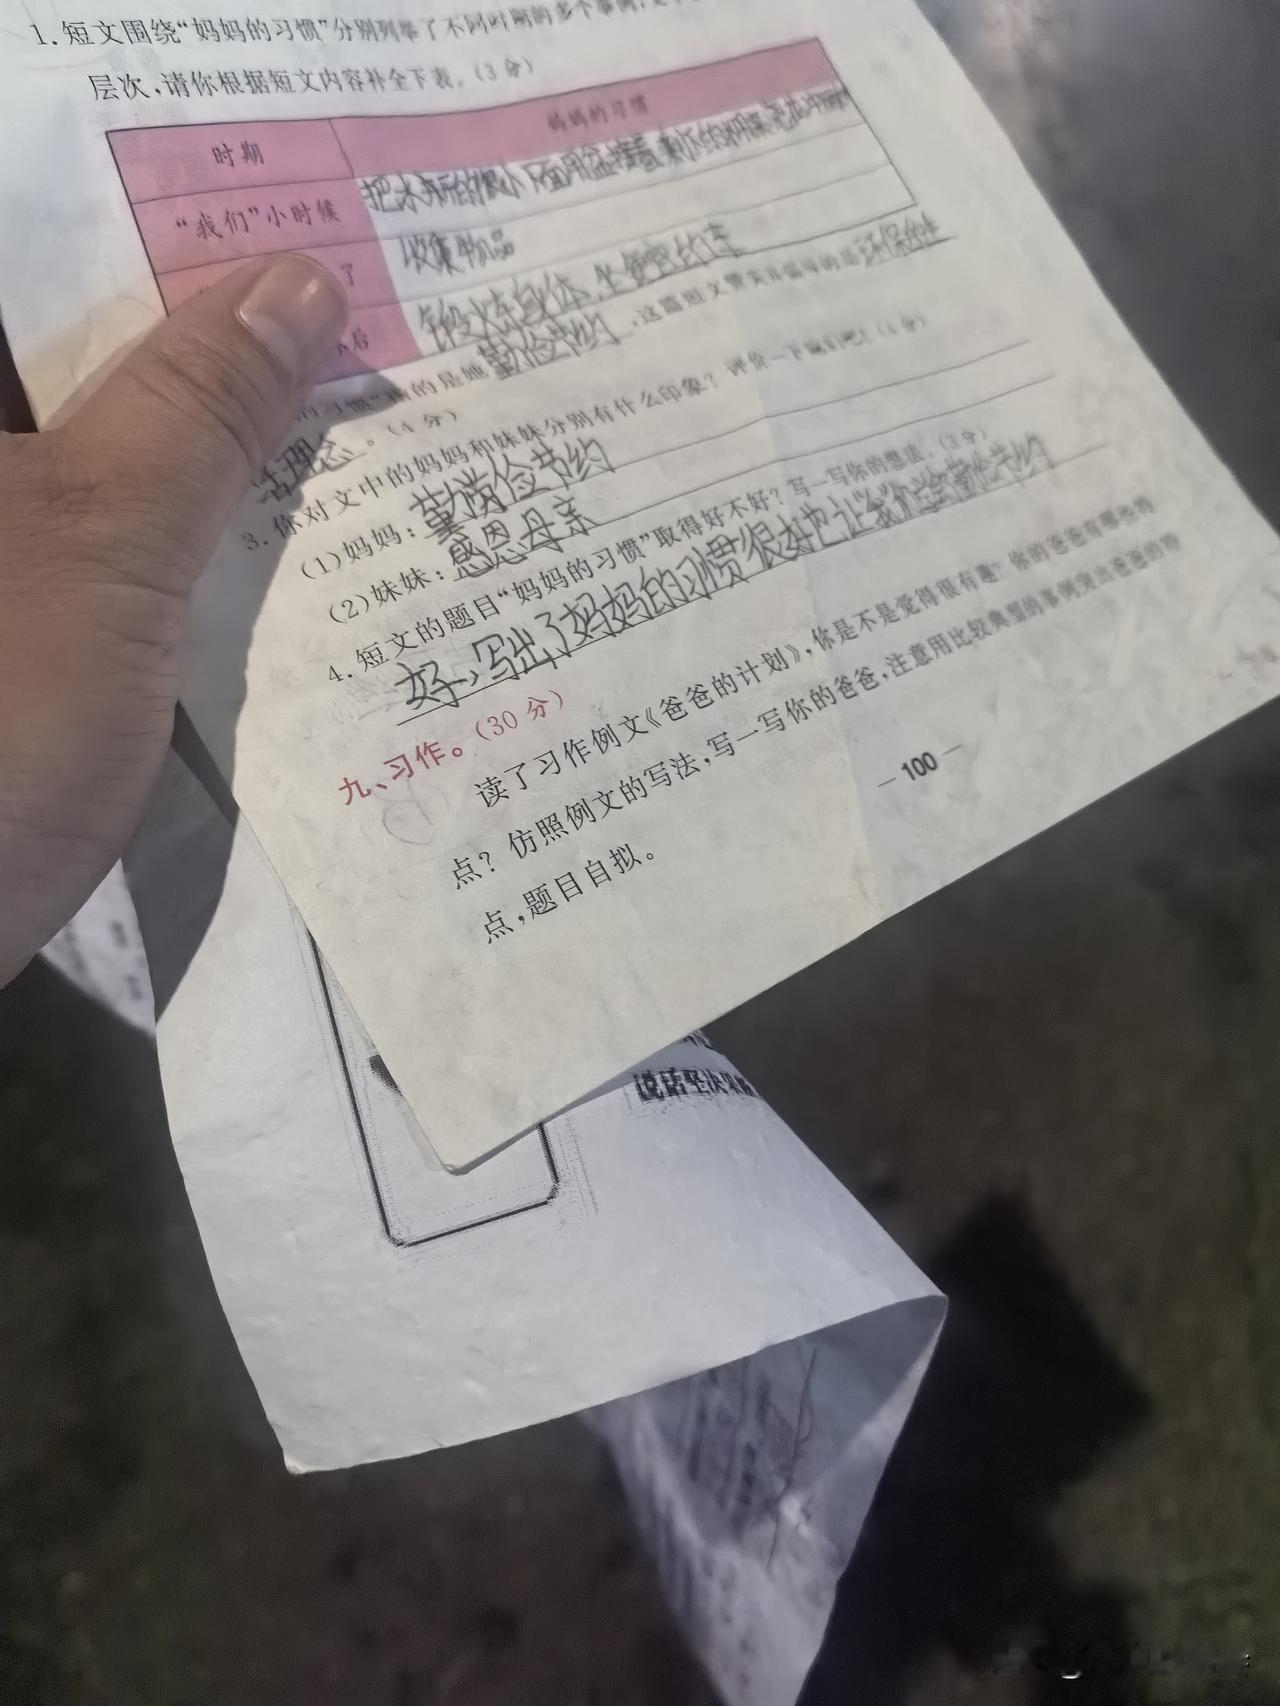 1.短文围绕“妈妈的习惯”分别列举了不同时期的多个事例,
层次,请你根据短文内容补全下表。(3分)
时期 妈妈的习惯
“我们”小时候 把水开的很小下面用盆接着
了 收集物品
后 锻炼身体,坐便宜的车
的习惯”的是她勤俭节约,这篇短文的是环保的生
活理念。(4分)
3.你对文中的妈妈和妹妹分别有什么印象?评价一下她们吧!(4分)
(1)妈妈:勤俭节约
(2)妹妹:感恩母亲
4.短文的题目“妈妈的习惯”取得好不好?写一写你的想法。(3分)
好,写出了妈妈的习惯很好也让我们学会勤俭节约
九、习作。(30分)
读了习作例文《爸爸的计划》,你是不是觉得很有趣?你的爸爸有哪些特
点?仿照例文的写法,写一写你的爸爸,注意用比较典型的事例突出爸爸的特
点,题目自拟。
—100—
说话坚决